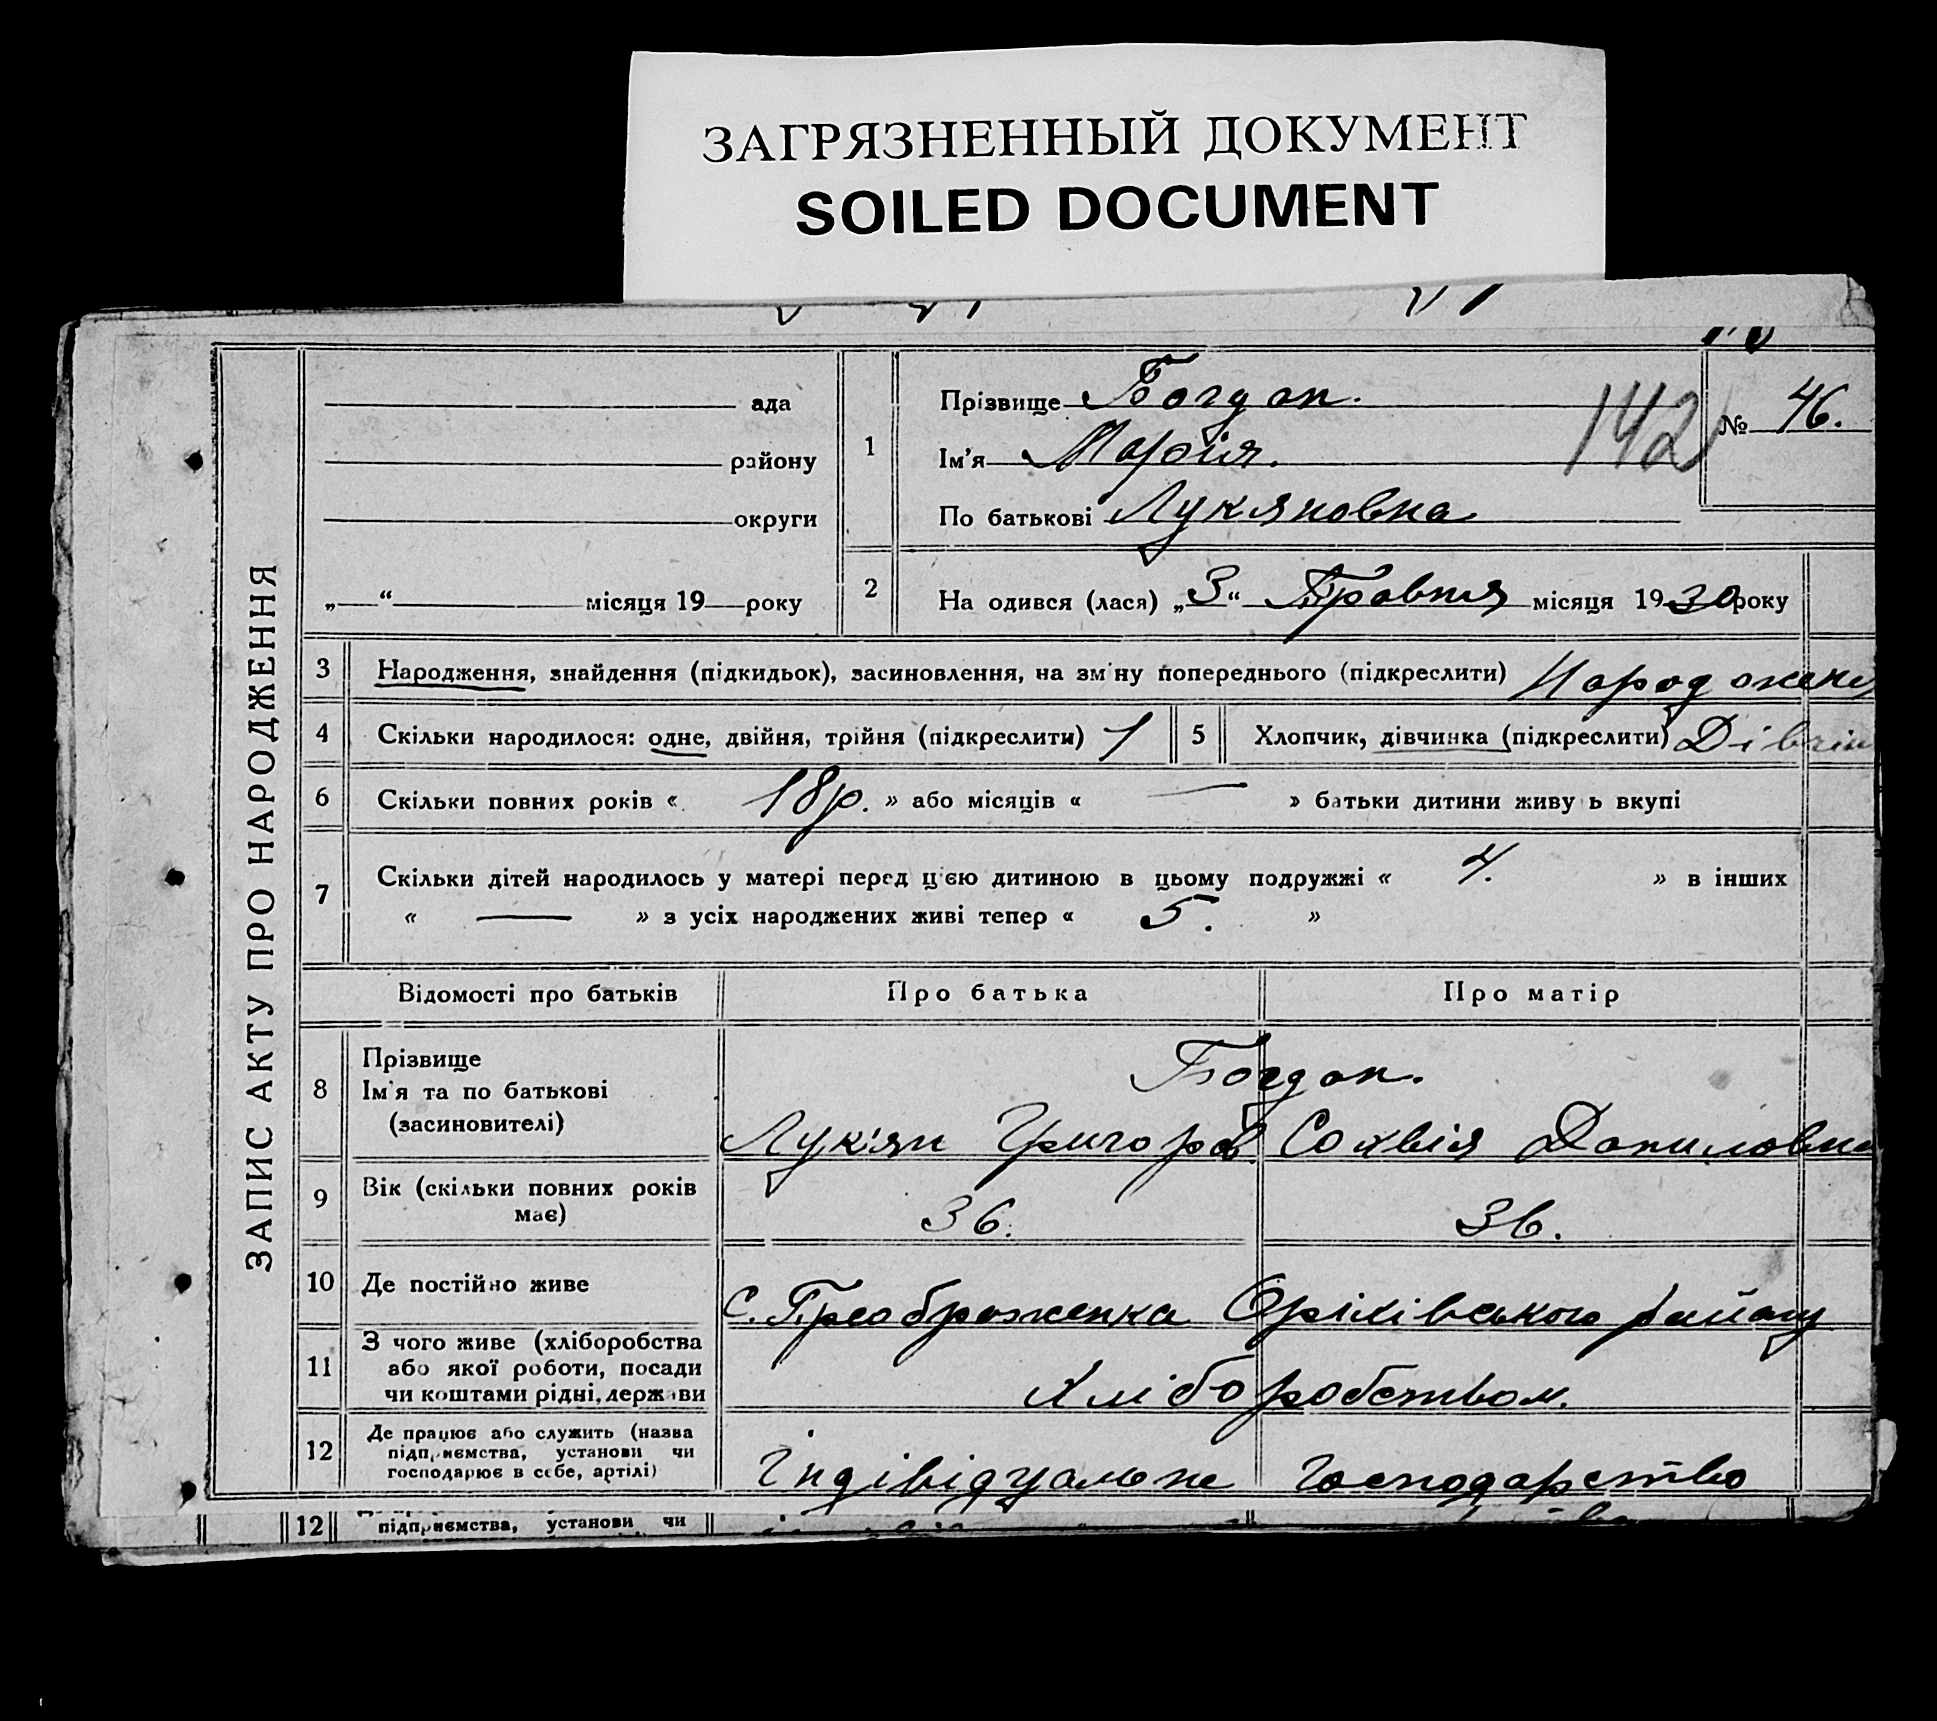 ЗАГРЯЗНЕННЫЙ ДОКУМЕНТ
SOILED DOCUMENT
ЗАПИС АКТУ ПРО НАРОДЖЕННЯ
ада
району
округи
„ “ місяця 19 року
1
Прізвище Богдан.
Ім'я Марія.
По батькові Лукяновна
142
№ 46.
2
На одився (лася) „3“ Травня місяця 1930 року
3 Народження, знайдення (підкидьок), засиновлення, на зм ну попереднього (підкреслити) Народжен
4 Скільки народилося: одне, двійня, трійня (підкреслити) 1
5 Хлопчик, дівчинка (підкреслити) Дівчин
6 Скільки повних років « 18 р. » або місяців « — » батьки дитини живу ь вкупі
7 Скільки дітей народилось у матері перед ц єю дитиною в цьому подружжі « 4. » в інших
« — » з усіх народжених живі тепер « 5. »
Відомості про батьків Про батька Про матір
8 Прізвище
Ім'я та по батькові
(засиновителі)
Богдан.
Лук'ян Григоров. Сохвія Даниловна
9 Вік (скільки повних років
має)
36. 36.
10 Де постійно живе
с. Преображенка Оріхівського району
11 З чого живе (хліборобства
або якої роботи, посади
чи коштами рідні, держави
Хліборобством.
12 Де працює або служить (назва
підприємства, установи чи
господарює в себе, артілі)
Індівідуальне господарство
12 підприємства, установи чи